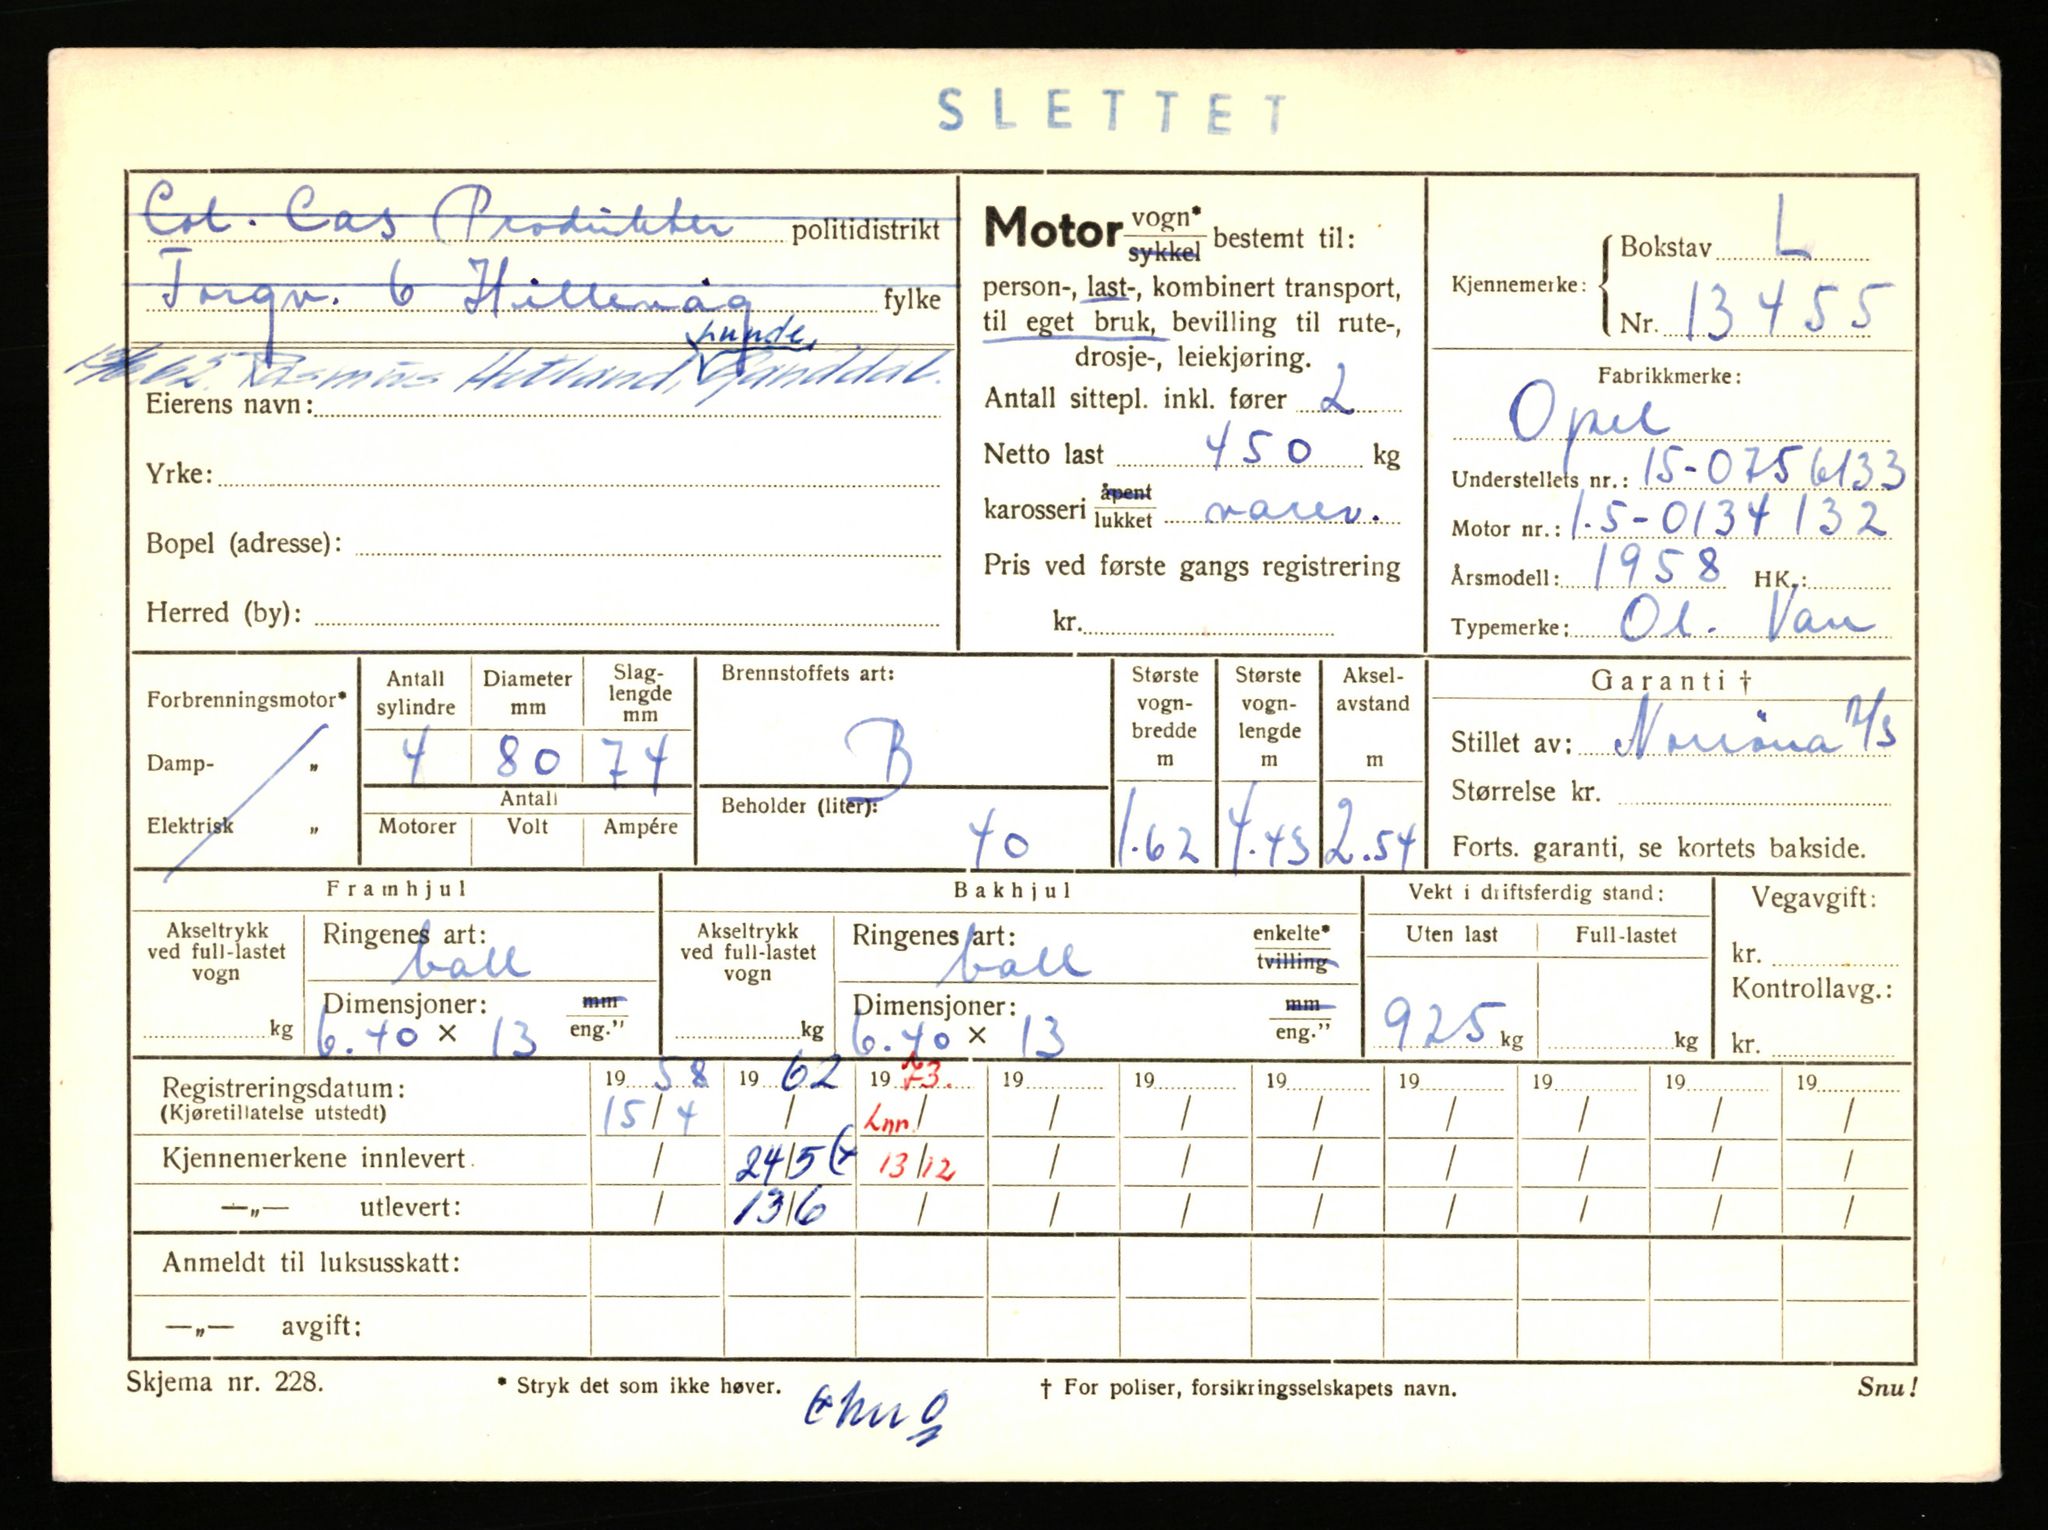 SLETTET
Col. Cas Produkter politidistrikt
Torgv. 6 Hillevåg fylke
62. Rasmus Hetland, Ganddal.
Eierens navn:
Yrke:
Bopel (adresse):
Herred (by):
Motor vogn* sykkel bestemt til:
person-, last-, kombinert transport,
til eget bruk, bevilling til rute-,
drosje-, leiekjøring.
Antall sittepl. inkl. fører 2
Netto last 450 kg
karosseri åpent lukket varev.
Pris ved første gangs registrering
kr.
Kjennemerke: Bokstav L
Nr. 13455
Fabrikkmerke:
Opel
Understellets nr.: 15-0756133
Motor nr.: 1.5-0134132
Årsmodell: 1958 HK.:
Typemerke: Ol. Van
Forbrenningsmotor*
Damp- "
Elektrisk "
Antall sylindre Diameter mm Slag-lengde mm
4 80 74
Antall
Motorer Volt Ampére
Brennstoffets art:
B
Beholder (liter):
40
Største vogn-bredde m
1.62
Største vogn-lengde m
4.43
Aksel-avstand m
2.54
Garanti †
Stillet av: Norröna A/S
Størrelse kr.
Forts. garanti, se kortets bakside.
Framhjul
Akseltrykk ved full-lastet vogn
kg
Ringenes art:
ball
Dimensjoner: mm
6.40 × 13 eng."
Bakhjul
Akseltrykk ved full-lastet vogn
kg
Ringenes art: enkelte*
ball tvilling
Dimensjoner: mm
6.40 × 13 eng."
Vekt i driftsferdig stand:
Uten last Full-lastet
925 kg kg
Vegavgift:
kr.
Kontrollavg.:
kr.
Registreringsdatum: 19 58 19 62 19 73. 19 19 19 19 19 19 19
(Kjøretillatelse utstedt) 15/4 / Lnn / / / / / / / /
Kjennemerkene innlevert. / 24/5 13/12 / / / / / / /
—„— utlevert: / 13/6 / / / / / / / /
Anmeldt til luksusskatt:
—„— avgift:
Skjema nr. 228. * Stryk det som ikke høver. † For poliser, forsikringsselskapets navn. Snu!